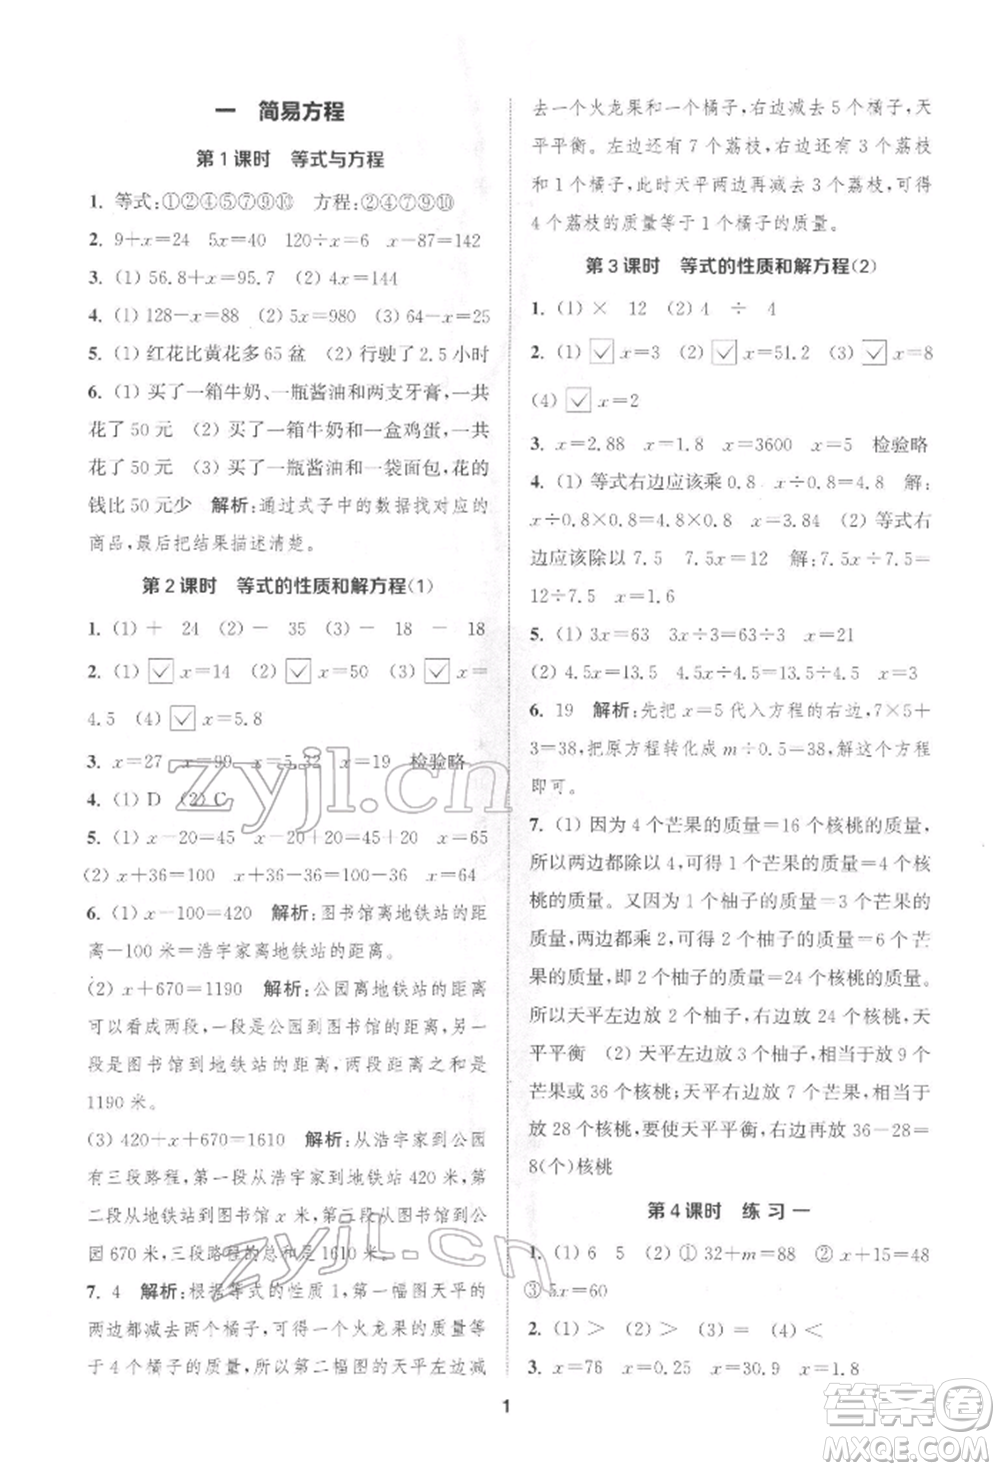 一 简易方程
第1课时 等式与方程
1. 等式:①②④⑤⑦⑨⑩ 方程:②④⑦⑨⑩
2. 9+x=24 5x=40 120÷x=6 x-87=142
3. (1) 56.8+x=95.7 (2) 4x=72
4. (1) 128-x=88 (2) 5x=980 (3) 64-x=25
5. (1) 红花比黄花多65盆 (2) 行驶了2.5小时
6. (1) 买了一箱牛奶、一瓶酱油和两支牙膏,一共
花了50元 (2) 买了一箱牛奶和一盒鸡蛋,一共
花了50元 (3) 买了一瓶酱油和一袋面包,花的
钱比50元少 解析:通过式子中的数据找对应的
商品,最后把结果描述清楚。
第2课时 等式的性质和解方程(1)
1. (1) + 24 (2) - 35 (3) - 18 - 18
2. (1) ✓ x=14 (2) ✓ x=50 (3) ✓ x=
4.5 (4) ✓ x=5.8
3. x=27 x=99 x=5.32 x=19 检验略
4. (1) D (2) C
5. (1) x-20=45 x-20+20=45+20 x=65
(2) x+36=100 x+36-36=100-36 x=64
6. (1) x-100=420 解析:图书馆离地铁站的距
离-100米=浩宇家离地铁站的距离。
(2) x+670=1190 解析:公园离地铁站的距离
可以看成两段,一段是公园到图书馆的距离,另一
段是图书馆到地铁站的距离,两段距离的总和是
1190米。
(3) 420+x+670=1610 解析:从浩宇家到公园
有三段路程,第一段从浩宇家到地铁站420米,第
二段从地铁站到图书馆x米,第三段从图书馆到公
园670米,三段路程的总和是1610米。
7. 4 解析:根据等式的性质1,第一幅图天平的
两边都减去两个橘子,可得一个火龙果的质量等
于4个橘子的质量,所以第二幅图的天平左边减
去一个火龙果和一个橘子,右边减去5个橘子,天
平平衡。此时左边还有7个荔枝,右边有3个荔枝
和1个橘子,此时天平两边再减去3个荔枝,可得
4个荔枝的质量等于1个橘子的质量。
第3课时 等式的性质和解方程(2)
1. (1) × 12 (2) 4 ÷ 4
2. (1) ✓ x=3 (2) ✓ x=51.2 (3) ✓ x=8
(4) ✓ x=2
3. x=2.88 x=1.8 x=3600 x=5 检验略
4. (1) 等式右边应该乘0.8 x÷0.8=4.8 解:
x÷0.8×0.8=4.8×0.8 x=3.84 (2) 等式右
边应该除以7.5 7.5x=12 解:7.5x÷7.5=
12÷7.5 x=1.6
5. (1) 3x=63 3x÷3=63÷3 x=21
(2) 4.5x=13.5 4.5x÷4.5=13.5÷4.5 x=3
6. 19 解析:先把x=5代入方程的右边,7×5+
3=38,把原方程转化成m÷0.5=38,解这个方程
即可。
7. (1) 因为4个芒果的质量=16个核桃的质量,
所以两边都除以4,可得一个芒果的质量=4个核
桃的质量。又因为1个柚子的质量=3个芒果的
质量,两边都乘2,可得2个柚子的质量=6个芒
果的质量,即2个柚子的质量=24个核桃的质量。
所以天平左边放2个柚子,右边放24个核桃,天
平平衡 (2) 天平左边放3个柚子,相当于放9个
芒果或36个核桃;天平右边放7个芒果,相当于
放28个核桃,要使天平平衡,右边应再放36-28=
8(个)核桃
第4课时 练习一
1. (1) 6 5 (2) ① 32+m=88 ② x+15=48
③ 5x=60
2. (1) > (2) > (3) = (4) <
3. x=76 x=0.25 x=30.9 x=1.8
1
zyjl.cn
zyjl.cn
答案圈
MXQE.COM